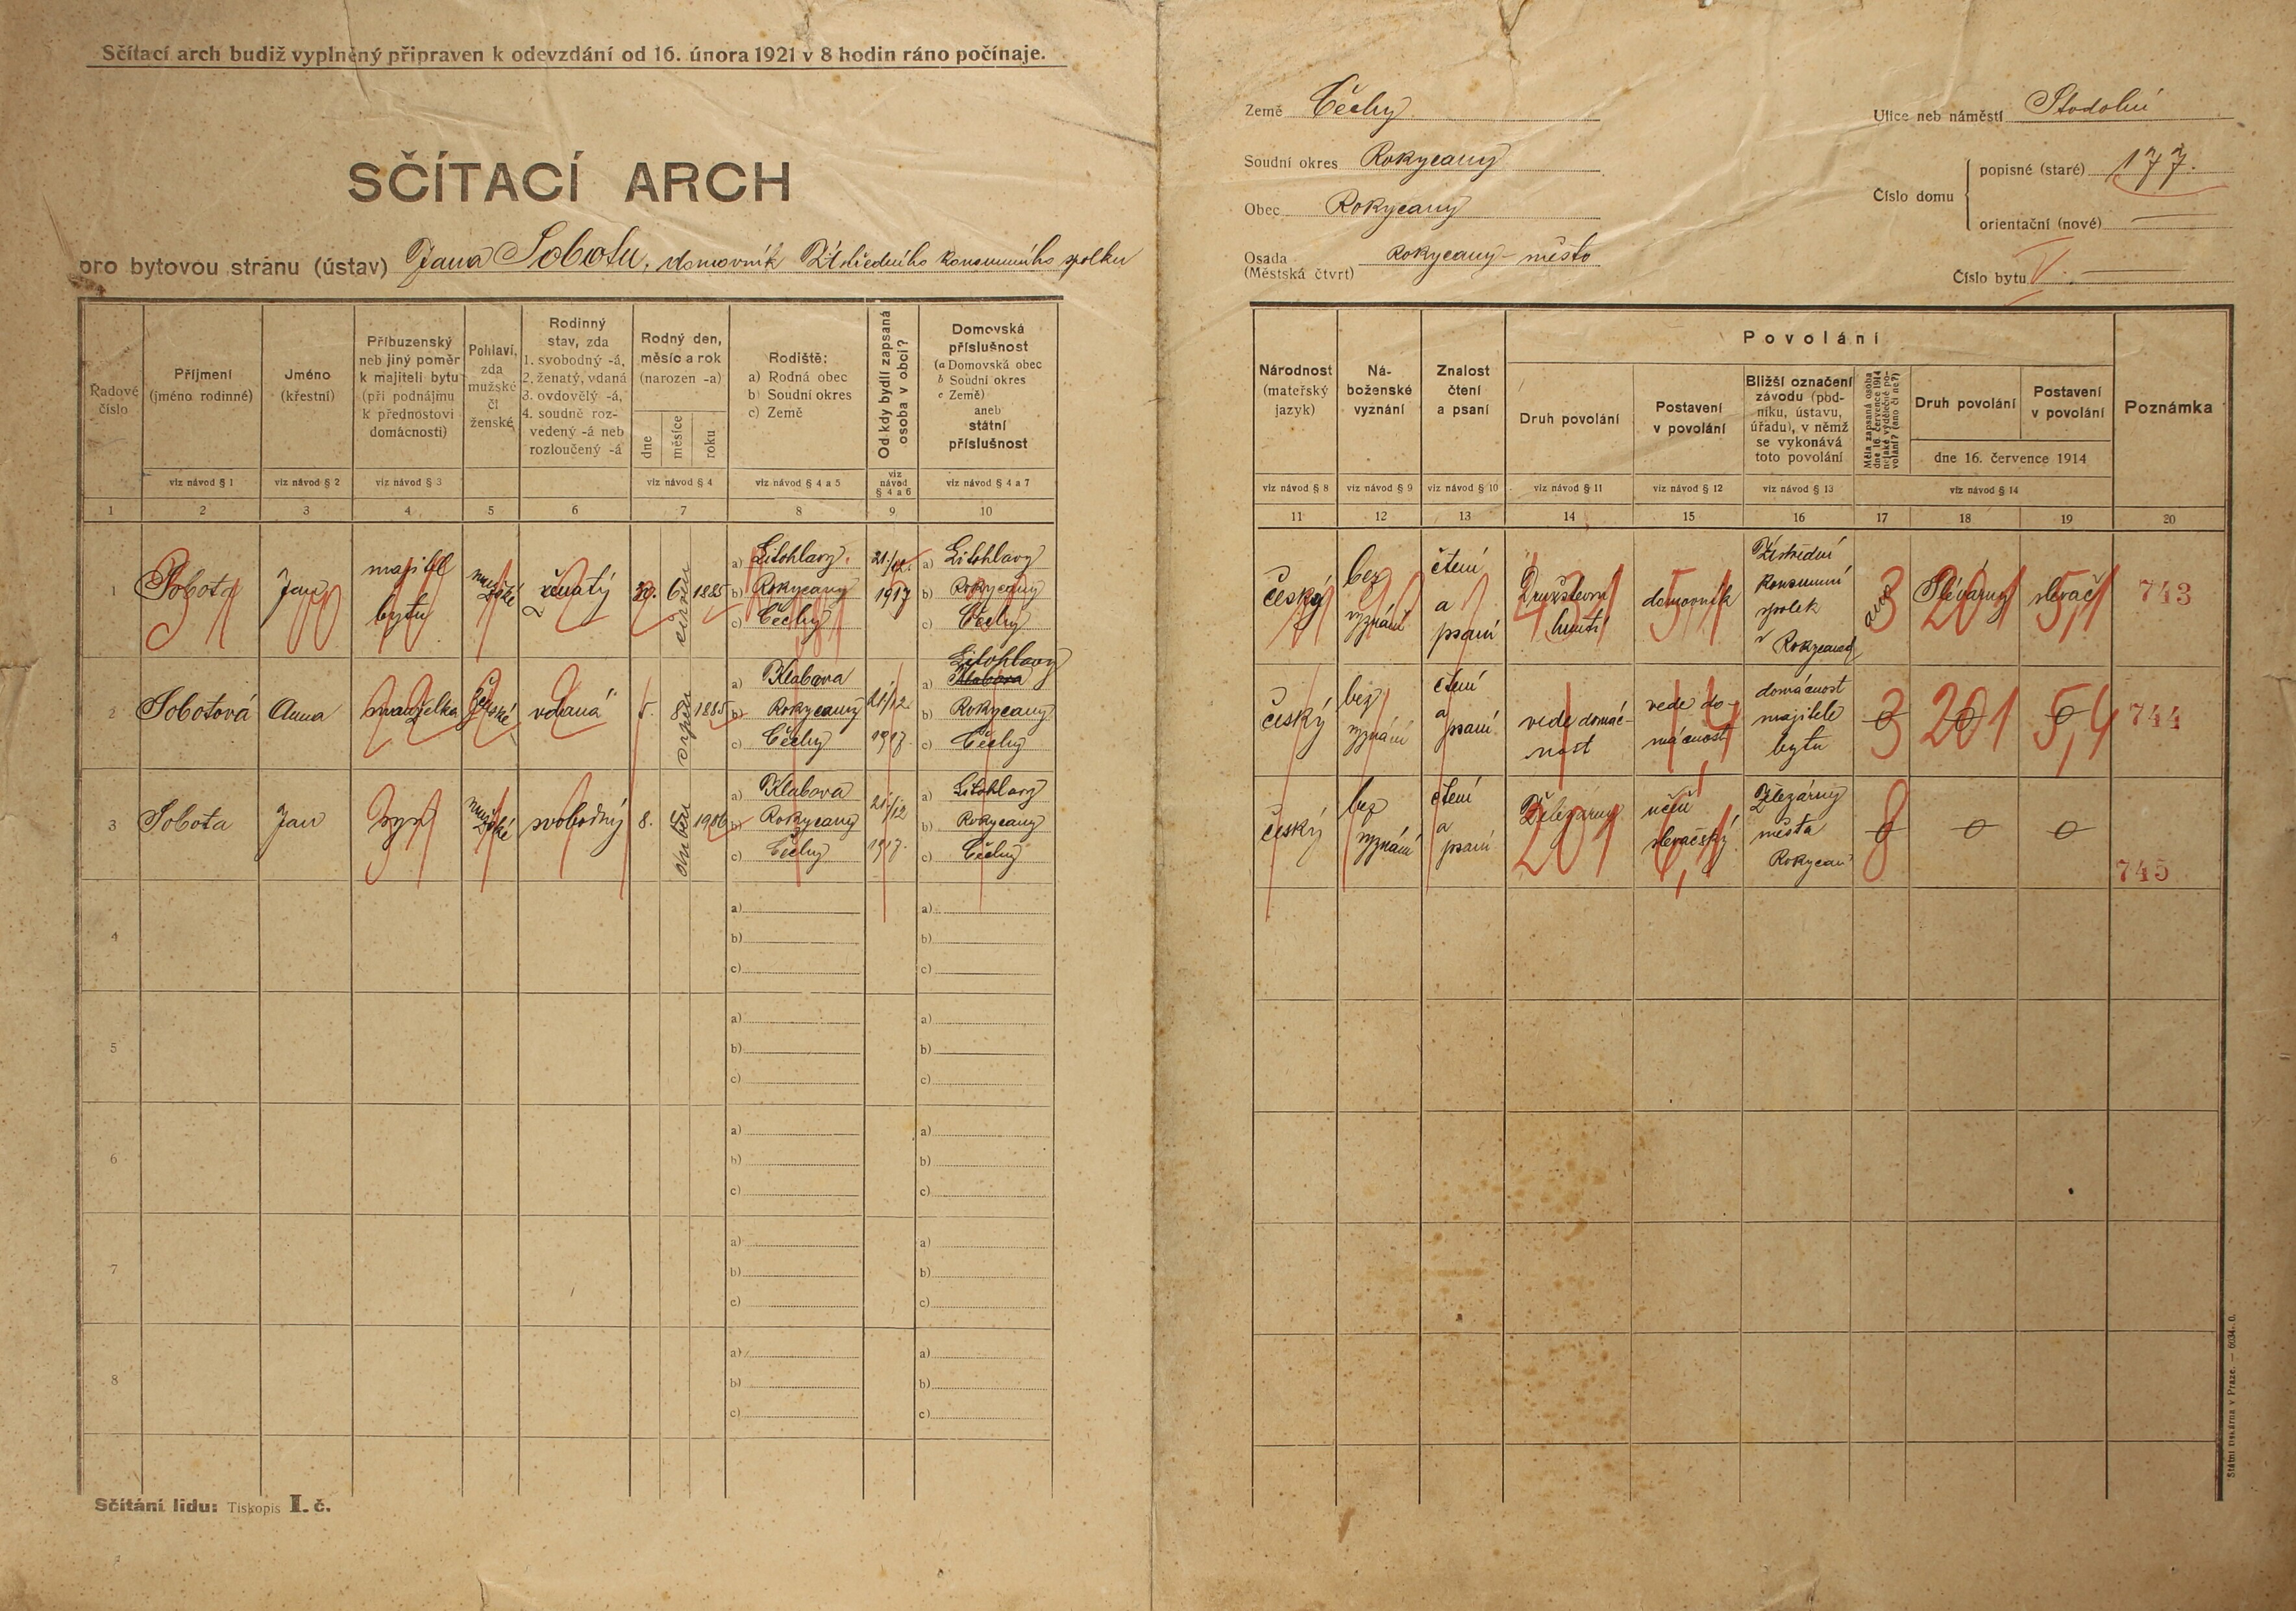 Sčítací arch budiž vyplněný připraven k odevzdání od 16. února 1921 v 8 hodin ráno počínaje.
SČÍTACÍ ARCH
pro bytovou stranu (ústav) Jana Sobotu, domovník Ústředního konsumního spolku
Země Čechy
Soudní okres Rokycany
Obec Rokycany
Osada (Městská čtvrt) Rokycany - město
Ulice neb náměstí Stodolní
Číslo domu
popisné (staré) 177.
orientační (nové)
Číslo bytu V.
Řadové číslo
Příjmení (jméno rodinné)
Jméno (křestní)
Příbuzenský neb jiný poměr k majiteli bytu (při podnájmu k přednostovi domácnosti)
Pohlaví, zda mužské či ženské
Rodinný stav, zda 1. svobodný -á, 2. ženatý, vdaná 3. ovdovělý -á, 4. soudně rozvedený -á neb rozloučený -á
Rodný den, měsíc a rok (narozen -a)
dne měsíce roku
Rodiště: a) Rodná obec b) Soudní okres c) Země
Od kdy bydlí zapsaná osoba v obci?
Domovská příslušnost (a Domovská obec b Soudní okres c Země) aneb státní příslušnost
viz návod § 1 viz návod § 2 viz návod § 3 viz návod § 4 viz návod § 4 a 5 viz návod § 4 a 6 viz návod § 4 a 7
1 2 3 4 5 6 7 8 9 10
Národnost (mateřský jazyk)
Náboženské vyznání
Znalost čtení a psaní
Povolání
Druh povolání
Postavení v povolání
Bližší označení závodu (podniku, ústavu, úřadu), v němž se vykonává toto povolání
Měla zapsaná osoba dne 16. července 1914 nějaké výdělečné povolání? (ano či ne?)
Druh povolání
Postavení v povolání
dne 16. července 1914
Poznámka
viz návod § 8 viz návod § 9 viz návod § 10 viz návod § 11 viz návod § 12 viz návod § 13 viz návod § 14
11 12 13 14 15 16 17 18 19 20
1 Sobota Jan majitel bytu mužské ženatý 6 červen 1885 a) Litohlavy b) Rokycany c) Čechy 21/12. 1917 a) Litohlavy b) Rokycany c) Čechy
český bez vyznání čtení a psaní Družstevní domovník Ústřední konsumní spolek v Rokycanech ano 3 Slévárny 201 slevač 5,1 743
2 Sobotová Anna manželka ženské vdaná 5. 8 srpen 1885 a) Klabava b) Rokycany c) Čechy 21/12. 1917. a) Litohlavy Klabava b) Rokycany c) Čechy
český bez vyznání čtení a psaní vede domácnost vede domácnost domácnost majitele bytu 0 3 0 201 0 5,4 744
3 Sobota Jan syn mužské svobodný 8. duben 1906 a) Klabava b) Rokycany c) Čechy 21/12 1917. a) Litohlavy b) Rokycany c) Čechy
český bez vyznání čtení a psaní Železárny 201 učeň slevačský 6,1 Železárny města Rokycan 0 8 0 0 745
4 a) b) c) a) b) c)
5 a) b) c) a) b) c)
6 a) b) c) a) b) c)
7 a) b) c) a) b) c)
8 a) b) c) a) b) c)
Sčítání lidu: Tiskopis I. č.
Státní tiskárna v Praze. — 6034-0.